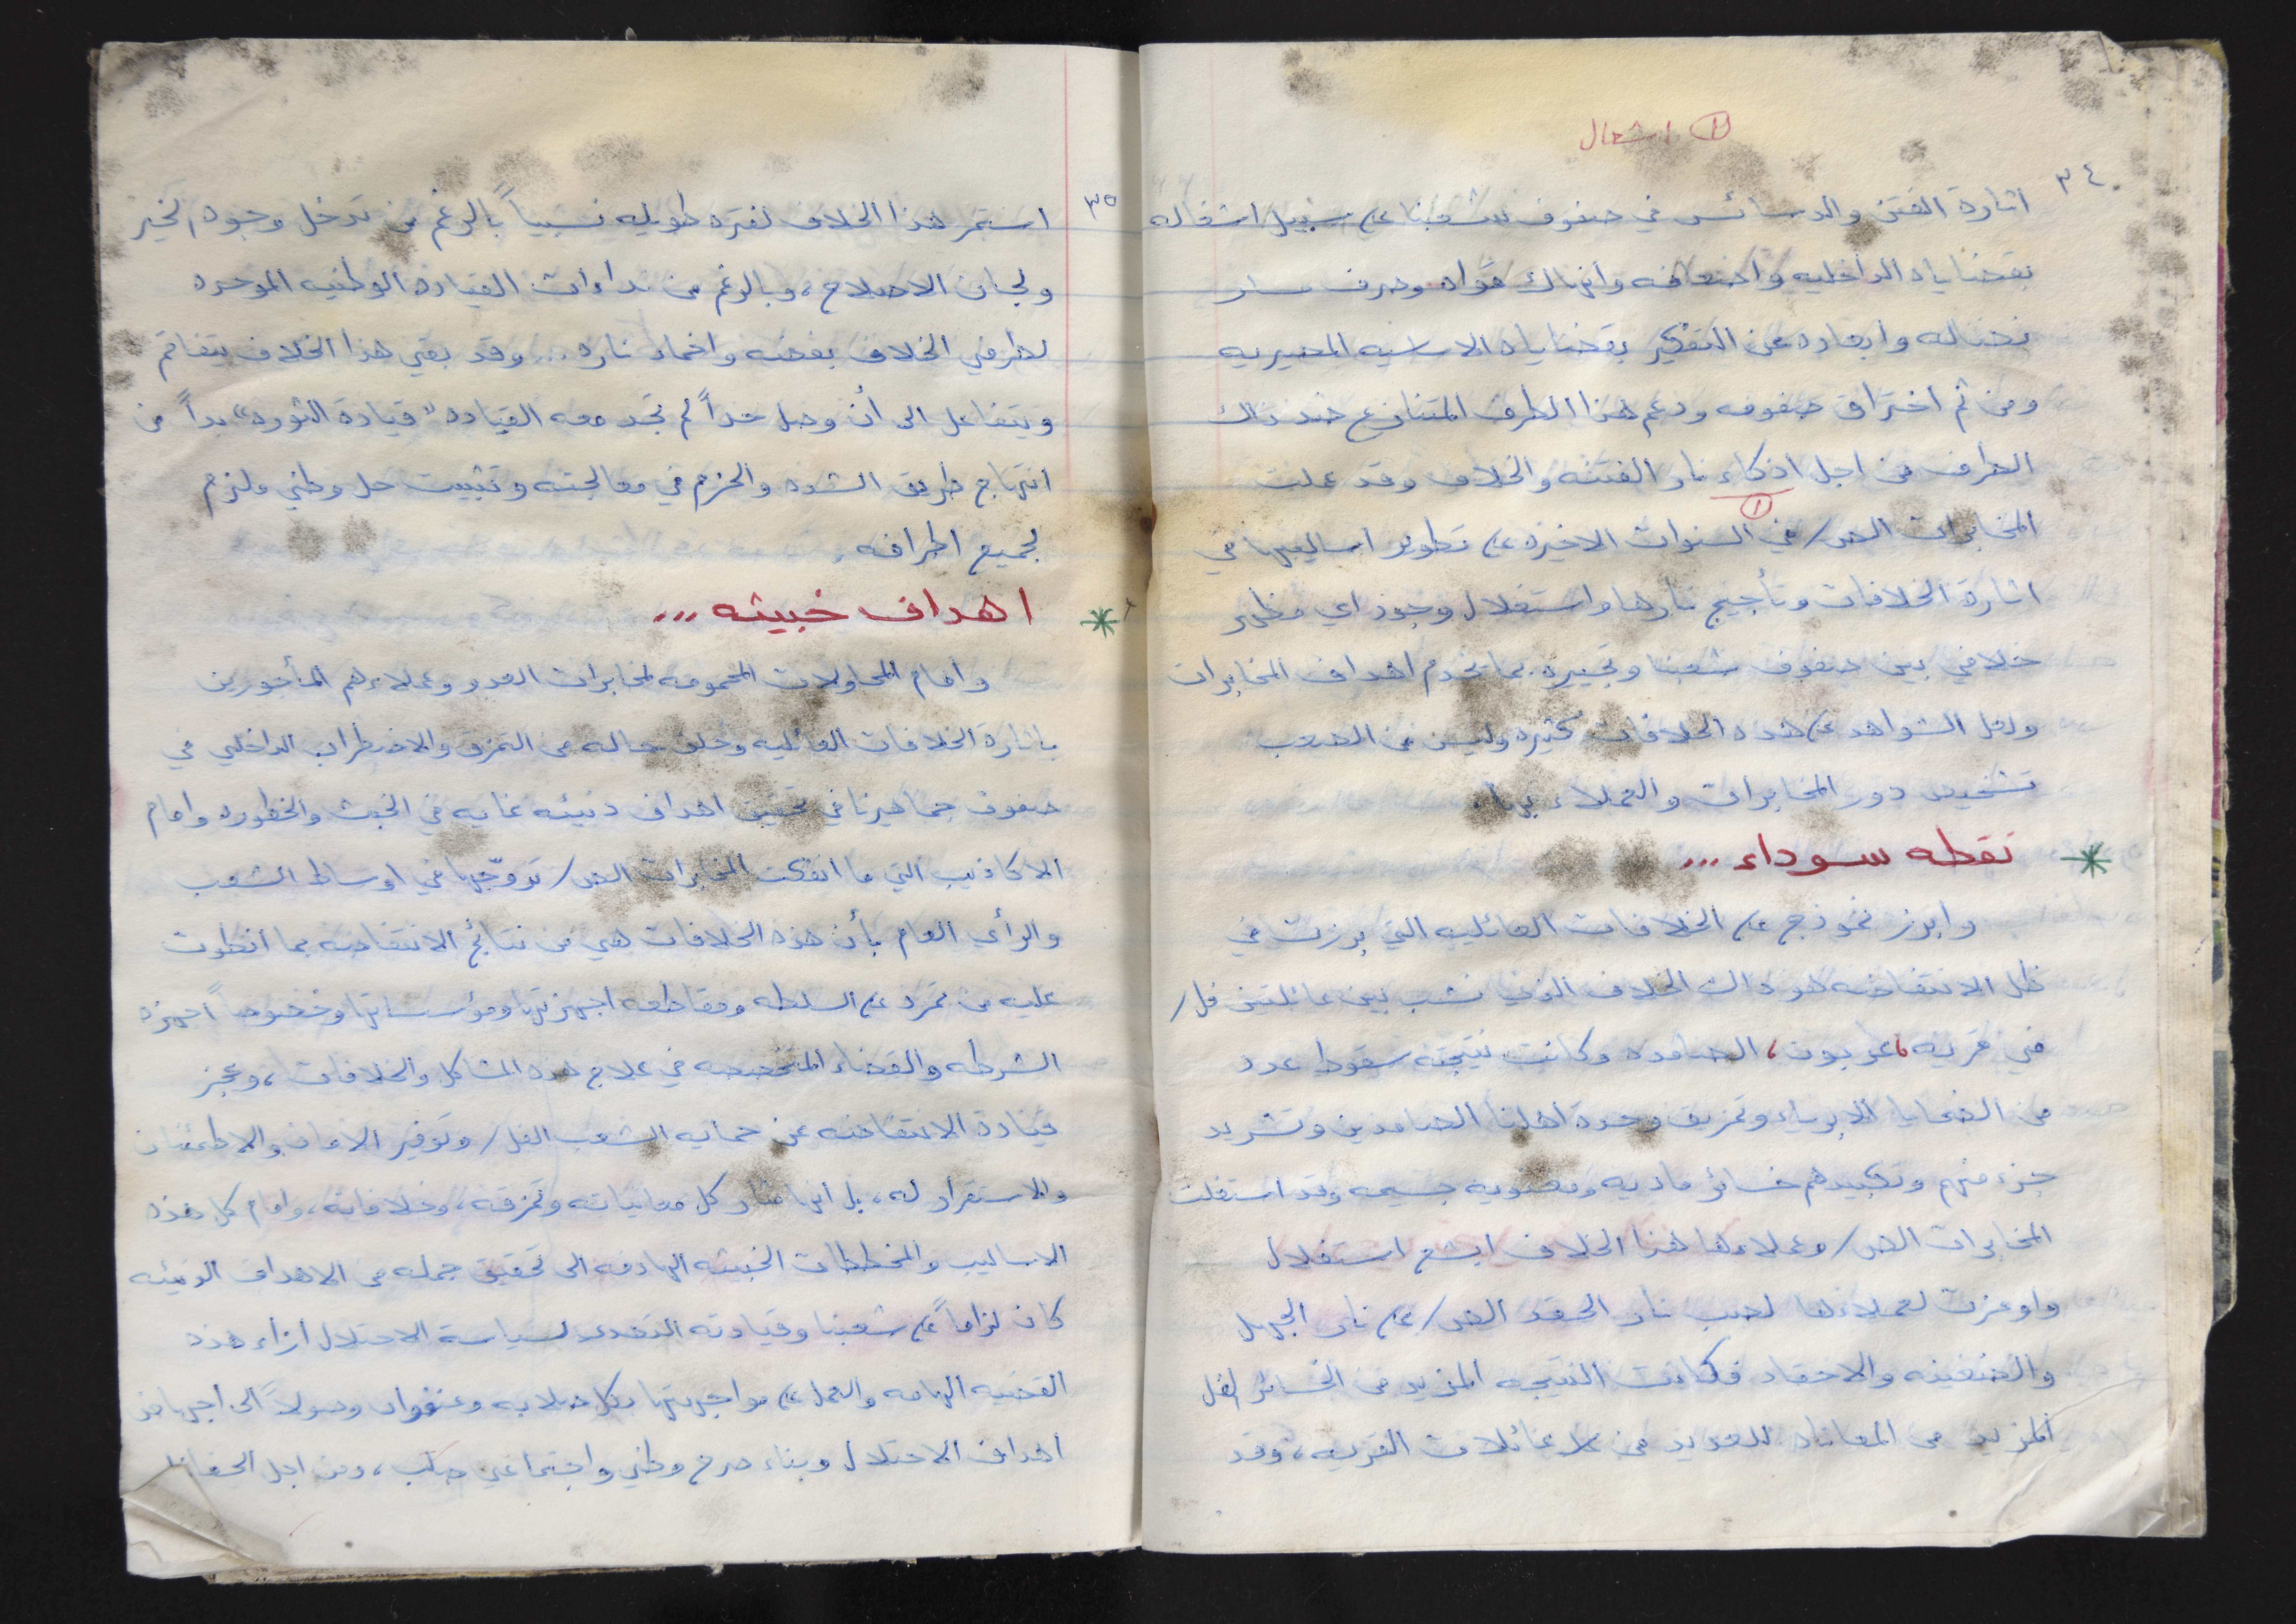 ① اشعال
٣٤
اثارة الفتن والدسائس في صفوف شعبنا على سبيل اشغاله
بقضاياه الداخليه واضعافه وانهاك قواه وحرف مسار
نضاله وابعاده عن التفكير بقضاياه الاساسيه المصيريه
ومن ثم اختراق صفوفه ودعم هذا الطرف المتنازع ضد ذاك
الطرف من اجل اذكاء نار الفتنه والخلاف وقد عملت
①
المخابرات الص/ في السنوات الاخيره على تطوير اساليبها في
اثارة الخلافات وتأجيج نارها واستغلال وجود اي مظهر
خلافي بين صفوف شعبنا وتجييره بما يخدم اهداف المخابرات
ولعل الشواهد على هذه الخلافات كثيره وليس من الصعب
تشخيص دور المخابرات والعملاء بها.
* نقطه سوداء ...
وابرز نموذج على الخلافات العائليه التي برزت في
ظل الانتفاضه هو ذاك الخلاف الذي نشب بين عائلتين فل/
في قرية "عربون" الصامده وكانت نتيجته سقوط عدد
من الضحايا الابرياء وتمزيق وحدة اهلنا الصامدين وتشريد
جزء منهم وتكبيدهم خسائر ماديه ومعنويه جسيمه وقد استغلت
المخابرات الص/ وعملاءها هذا الخلاف ابشع استغلال
واوعزت لعملاءها لصب نار الحقد الص/ على نار الجهل
والضغينه والاحقاد فكانت النتيجه المزيد من الخسائر لفل
المزيد من المعاناه للعديد من عائلات القريه، وقد
٣٥
استمر هذا الخلاف لفتره طويله نسبياً بالرغم من تدخل وجوه الخير
ولجان الاصلاح، وبالرغم من نداءات القياده الوطنيه الموحده
لطرفي الخلاف بفضه واخماد ناره... وقد بقي هذا الخلاف يتفاقم
ويتفاعل الى أن وصل حداً لم تجد معه القياده "قيادة الثوره" بداً من
انتهاج طريق الشده والحزم في معالجته وتثبيت حل وطني ملزم
لجميع اطرافه.
* اهداف خبيثه ...
وامام المحاولات المحمومه لمخابرات العدو وعملاءهم المأجورين
باثارة الخلافات العائليه وخلق حاله من التمزق والاضطراب الداخلي في
صفوف جماهيرنا في تحقيق اهداف دنيئه غايه في الخبث والخطوره وامام
الاكاذيب التي ما انفكت المخابرات الص/ تروّجها في اوساط الشعب
والرأي العام بأن هذه الخلافات هي من نتائج الانتفاضه بما انطوت
عليه من تمرد على السلطه ومقاطعه اجهزتها ومؤسساتها وخصوصاً اجهزة
الشرطه والقضاء المتخصصه في علاج هذه المشاكل والخلافات، وعجز
قيادة الانتفاضه عن حمايه الشعب الفل/ وتوفير الامان والاطمئنان
والاستقرار له، بل انها مثار كل معاناته وتمزقه، وخلافاته، وامام كل هذه
الاساليب والمخططات الخبيثه الهادفه الى تحقيق جمله من الاهداف الدنيئه
كان لزاماً على شعبنا وقيادته التصدي لسياسة الاحتلال ازاء هذه
القضيه الهامه والعمل على مواجهتها بكل صلابه وعنفوان وصولاً الى اجهاض
اهداف الاحتلال وبناء صرح وطني واجتماعي صلب، ومن اجل الحفاظ